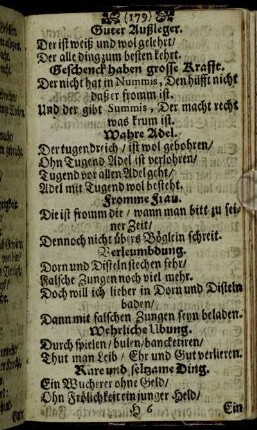 (179)
Guter Außleger.
Der ist weiß und wol gelehrt/
Der alle ding zum besten kehrt.
Geschenck haben grosse Krafft.
Der nicht hat in Nummis, Den hilfft nicht
daß er fromm ist.
Und der gibt Summis, Der macht recht
was krum ist.
Wahre Adel.
Der tugendreich / ist wol gebohren/
Ohn Tugend Adel ist verlohren/
Tugend vor allen Adel geht/
Adel mit Tugend wol besteht.
Fromme Frau.
Die ist fromm die / wann man bitt zu sei-
ner Zeit/
Dennoch nicht übers Böglein schreit.
Verleumbdung.
Dorn und Disteln stechen sehr/
Falsche Zungen noch viel mehr.
Doch will ich lieber in Dorn und Disteln
baden/
Dann mit falschen Zungen seyn beladen.
Wehrliche Ubung.
Durch spielen/ bulen/ bancketiren/
Thut man Leib / Ehr und Gut verlieren.
Rare und seltzame Ding.
Ein Wucherer ohne Geld/
Ohn Frölichkeit ein junger Held/
H 6 Ein